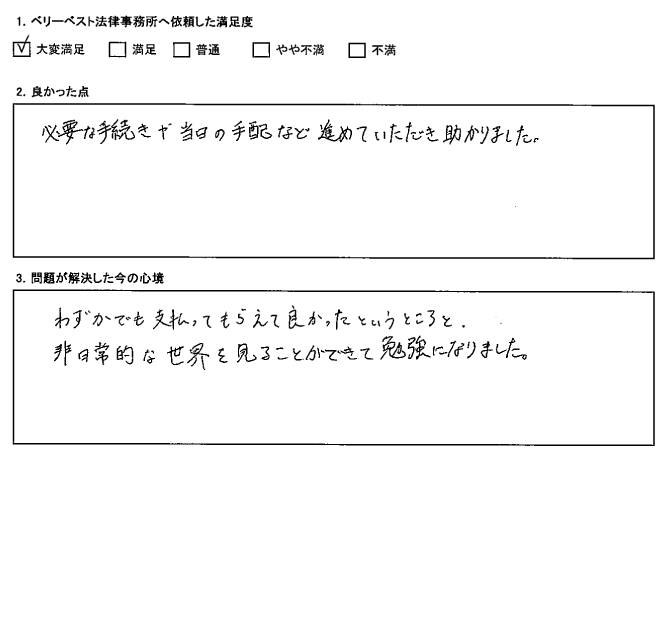 1. ベリーベスト法律事務所へ依頼した満足度
☑ 大変満足 □ 満足 □ 普通 □ やや不満 □ 不満
2. 良かった点
必要な手続きや当日の手配など進めていただき助かりました。
3. 問題が解決した今の心境
わずかでも支払ってもらえて良かったというところと、
非日常的な世界を見ることができて勉強になりました。